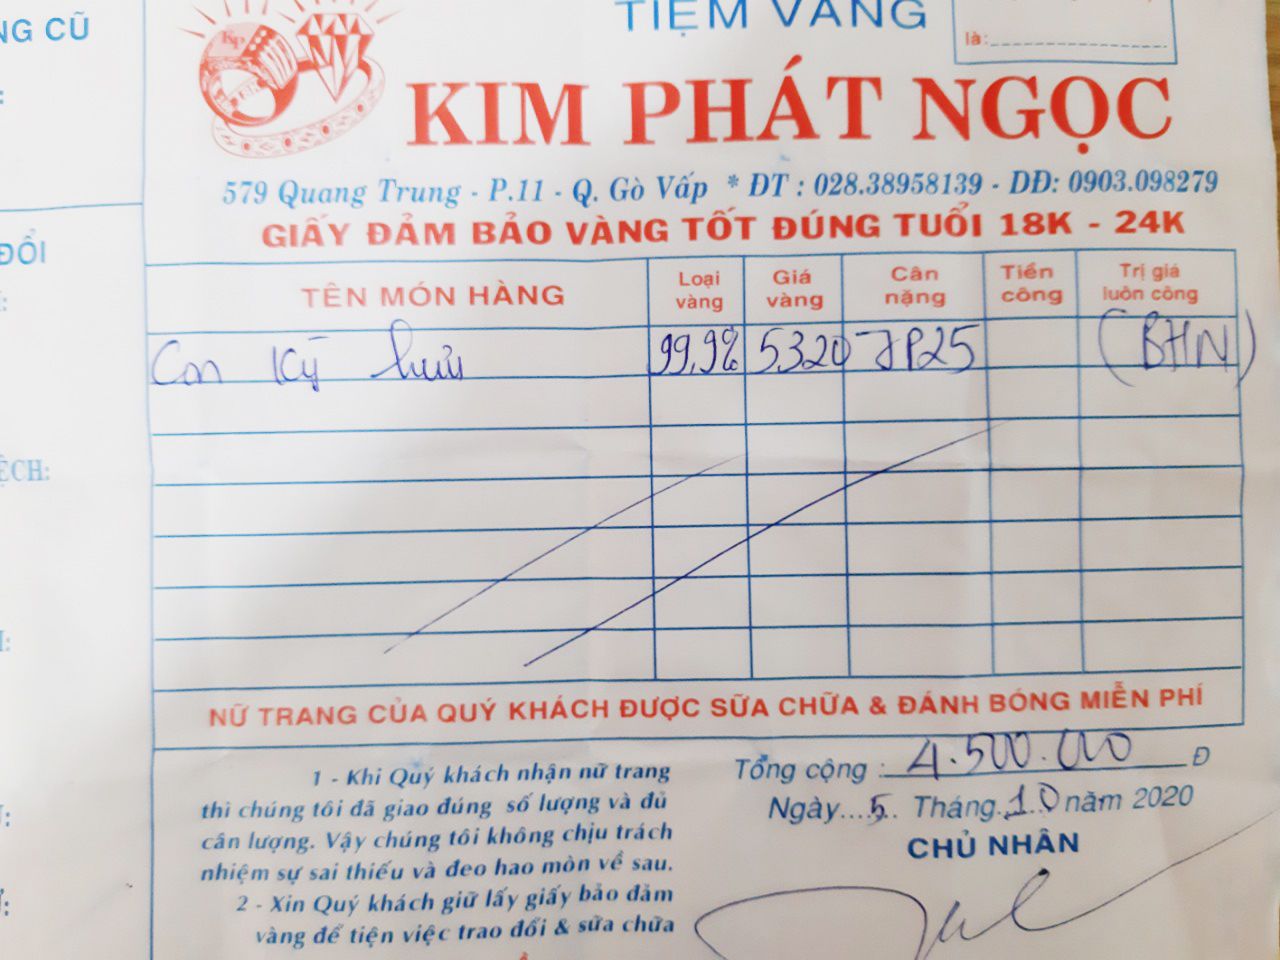 NG CŨ
TIỆM VÀNG
là:
KIM PHÁT NGỌC
579 Quang Trung - P.11 - Q. Gò Vấp * ĐT : 028.38958139 - DĐ: 0903.098279
GIẤY ĐẢM BẢO VÀNG TỐT ĐÚNG TUỔI 18K - 24K
ĐỔI
TÊN MÓN HÀNG Loại vàng Giá vàng Cân nặng Tiền công Trị giá luôn công
Con Kỳ hưu 99,9% 5320 1P25 (BHN)
ỆCH:
NỮ TRANG CỦA QUÝ KHÁCH ĐƯỢC SỮA CHỮA & ĐÁNH BÓNG MIỄN PHÍ
1 - Khi Quý khách nhận nữ trang
thì chúng tôi đã giao đúng số lượng và đủ
cân lượng. Vậy chúng tôi không chịu trách
nhiệm sự sai thiếu và đeo hao mòn về sau.
2 - Xin Quý khách giữ lấy giấy bảo đảm
vàng để tiện việc trao đổi & sữa chữa
Tổng cộng : 4.500.000 Đ
Ngày....5.. Tháng.10 năm 2020
CHỦ NHÂN